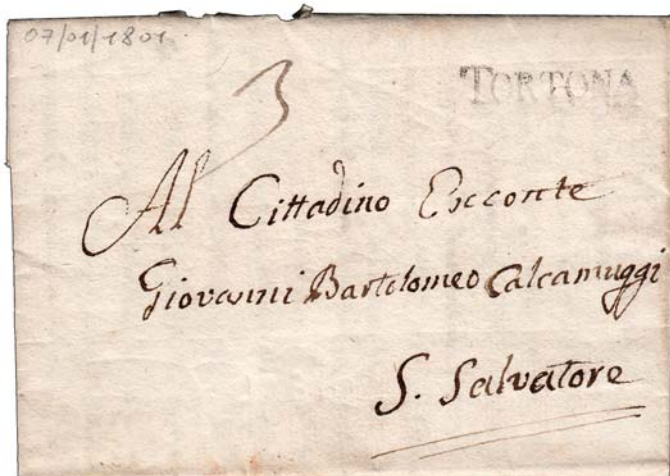 07/01/1801
3
TORTONA
Al Cittadino Exconte
Giovanni Bartolomeo Calcamuggi
S. Salvatore